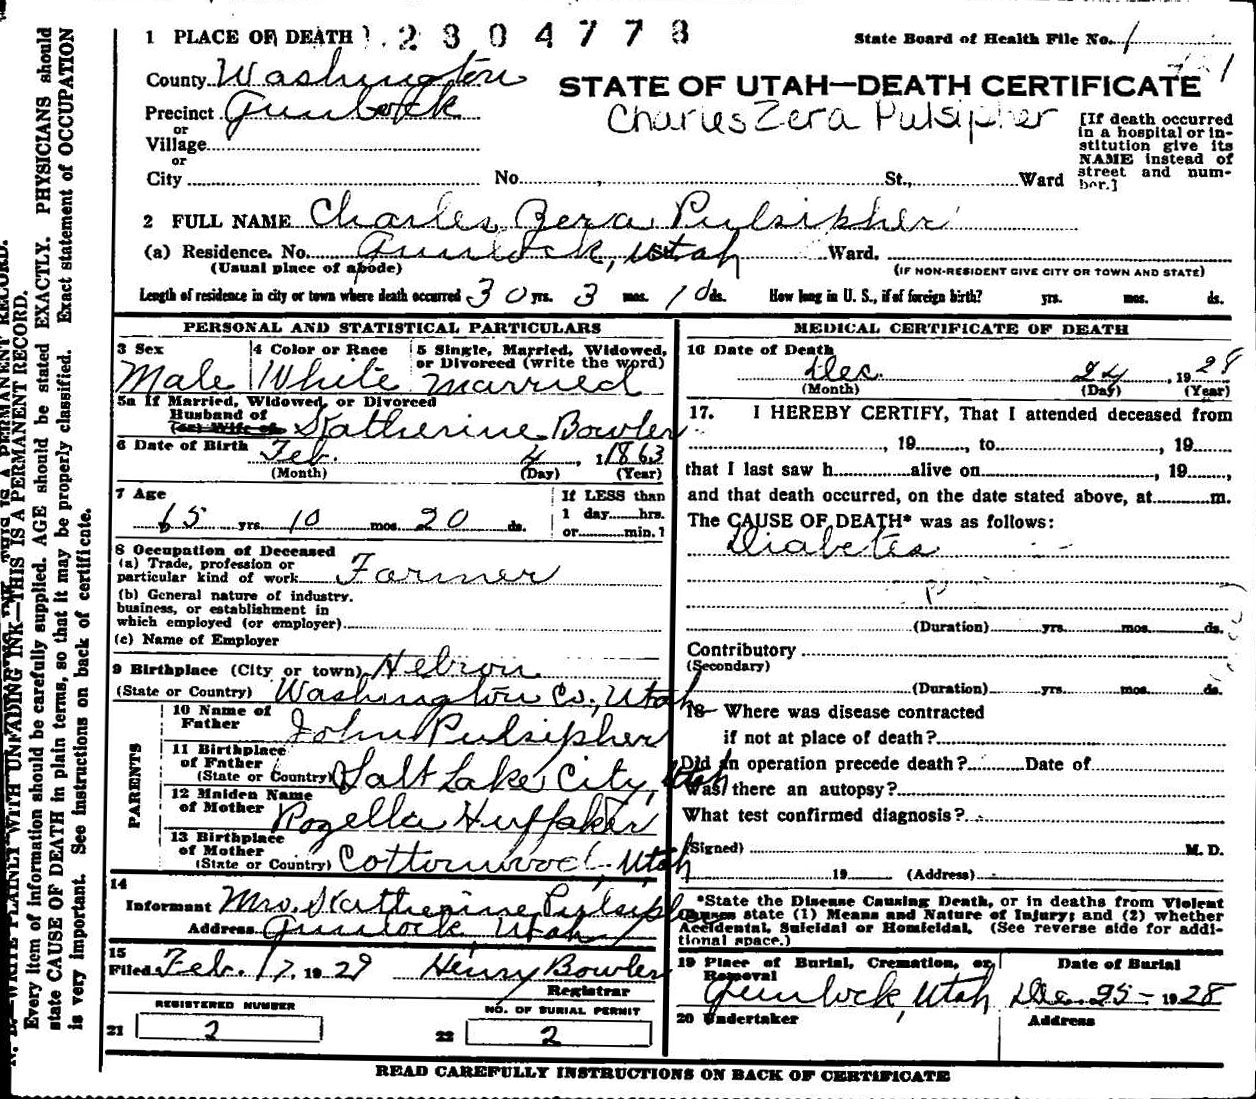 1 PLACE OF DEATH 1 2304778
State Board of Health File No. 1
County Washington
STATE OF UTAH—DEATH CERTIFICATE
Precinct Gunlock
Charles Zera Pulsipher
[If death occurred
in a hospital or in-
stitution give its
NAME instead of
street and num-
ber.]
or
Village
or
City No. St., Ward
2 FULL NAME Charles Zera Pulsipher
(a) Residence. No. Gunlock, Utah St. Ward.
(Usual place of abode) (IF NON-RESIDENT GIVE CITY OR TOWN AND STATE)
Length of residence in city or town where death occurred 30 yrs. 3 mos. 10 ds. How long in U. S., if of foreign birth? yrs. mos. ds.
PERSONAL AND STATISTICAL PARTICULARS
3 Sex 4 Color or Race 5 Single, Married, Widowed,
or Divorced (write the word)
Male White married
5a If Married, Widowed, or Divorced
Husband of
(or) Wife of Katherine Bowler
6 Date of Birth Feb. 4, 1863
(Month) (Day) (Year)
7 Age
65 yrs. 10 mos. 20 ds.
If LESS than
1 day hrs.
or min.?
8 Occupation of Deceased
(a) Trade, profession or
particular kind of work Farmer
(b) General nature of industry,
business, or establishment in
which employed (or employer)
(c) Name of Employer
9 Birthplace (City or town) Hebron
(State or Country) Washington Co., Utah
PARENTS
10 Name of
Father John Pulsipher
11 Birthplace
of Father
(State or Country) Salt Lake City, Utah
12 Maiden Name
of Mother Rozella Huffaker
13 Birthplace
of Mother
(State or Country) Cottonwood, Utah
14
Informant Mrs. Katherine Pulsipher
Address Gunlock, Utah
15
Filed Feb. 17, 1929 Henry Bowler
Registrar
REGISTERED NUMBER NO. OF BURIAL PERMIT
21 2 22 2
MEDICAL CERTIFICATE OF DEATH
16 Date of Death
Dec. 24, 1928
(Month) (Day) (Year)
17. I HEREBY CERTIFY, That I attended deceased from
, 19, to, 19
that I last saw h alive on, 19,
and that death occurred, on the date stated above, at m.
The CAUSE OF DEATH* was as follows:
Diabetes
(Duration) yrs. mos. ds.
Contributory
(Secondary)
(Duration) yrs. mos. ds.
18 Where was disease contracted
if not at place of death?
Did an operation precede death? Date of
Was there an autopsy?
What test confirmed diagnosis?
(Signed) M. D.
19 (Address)
*State the Disease Causing Death, or in deaths from Violent
Causes state (1) Means and Nature of Injury; and (2) whether
Accidental, Suicidal or Homicidal. (See reverse side for addi-
tional space.)
19 Place of Burial, Cremation, or
Removal
Date of Burial
Gunlock, Utah Dec. 25 - 1928
20 Undertaker Address
READ CAREFULLY INSTRUCTIONS ON BACK OF CERTIFICATE
N. B.—WRITE PLAINLY WITH UNFADING INK—THIS IS A PERMANENT RECORD.
Every item of information should be carefully supplied. AGE should be stated EXACTLY. PHYSICIANS should
state CAUSE OF DEATH in plain terms, so that it may be properly classified. Exact statement of OCCUPATION
is very important. See instructions on back of certificate.